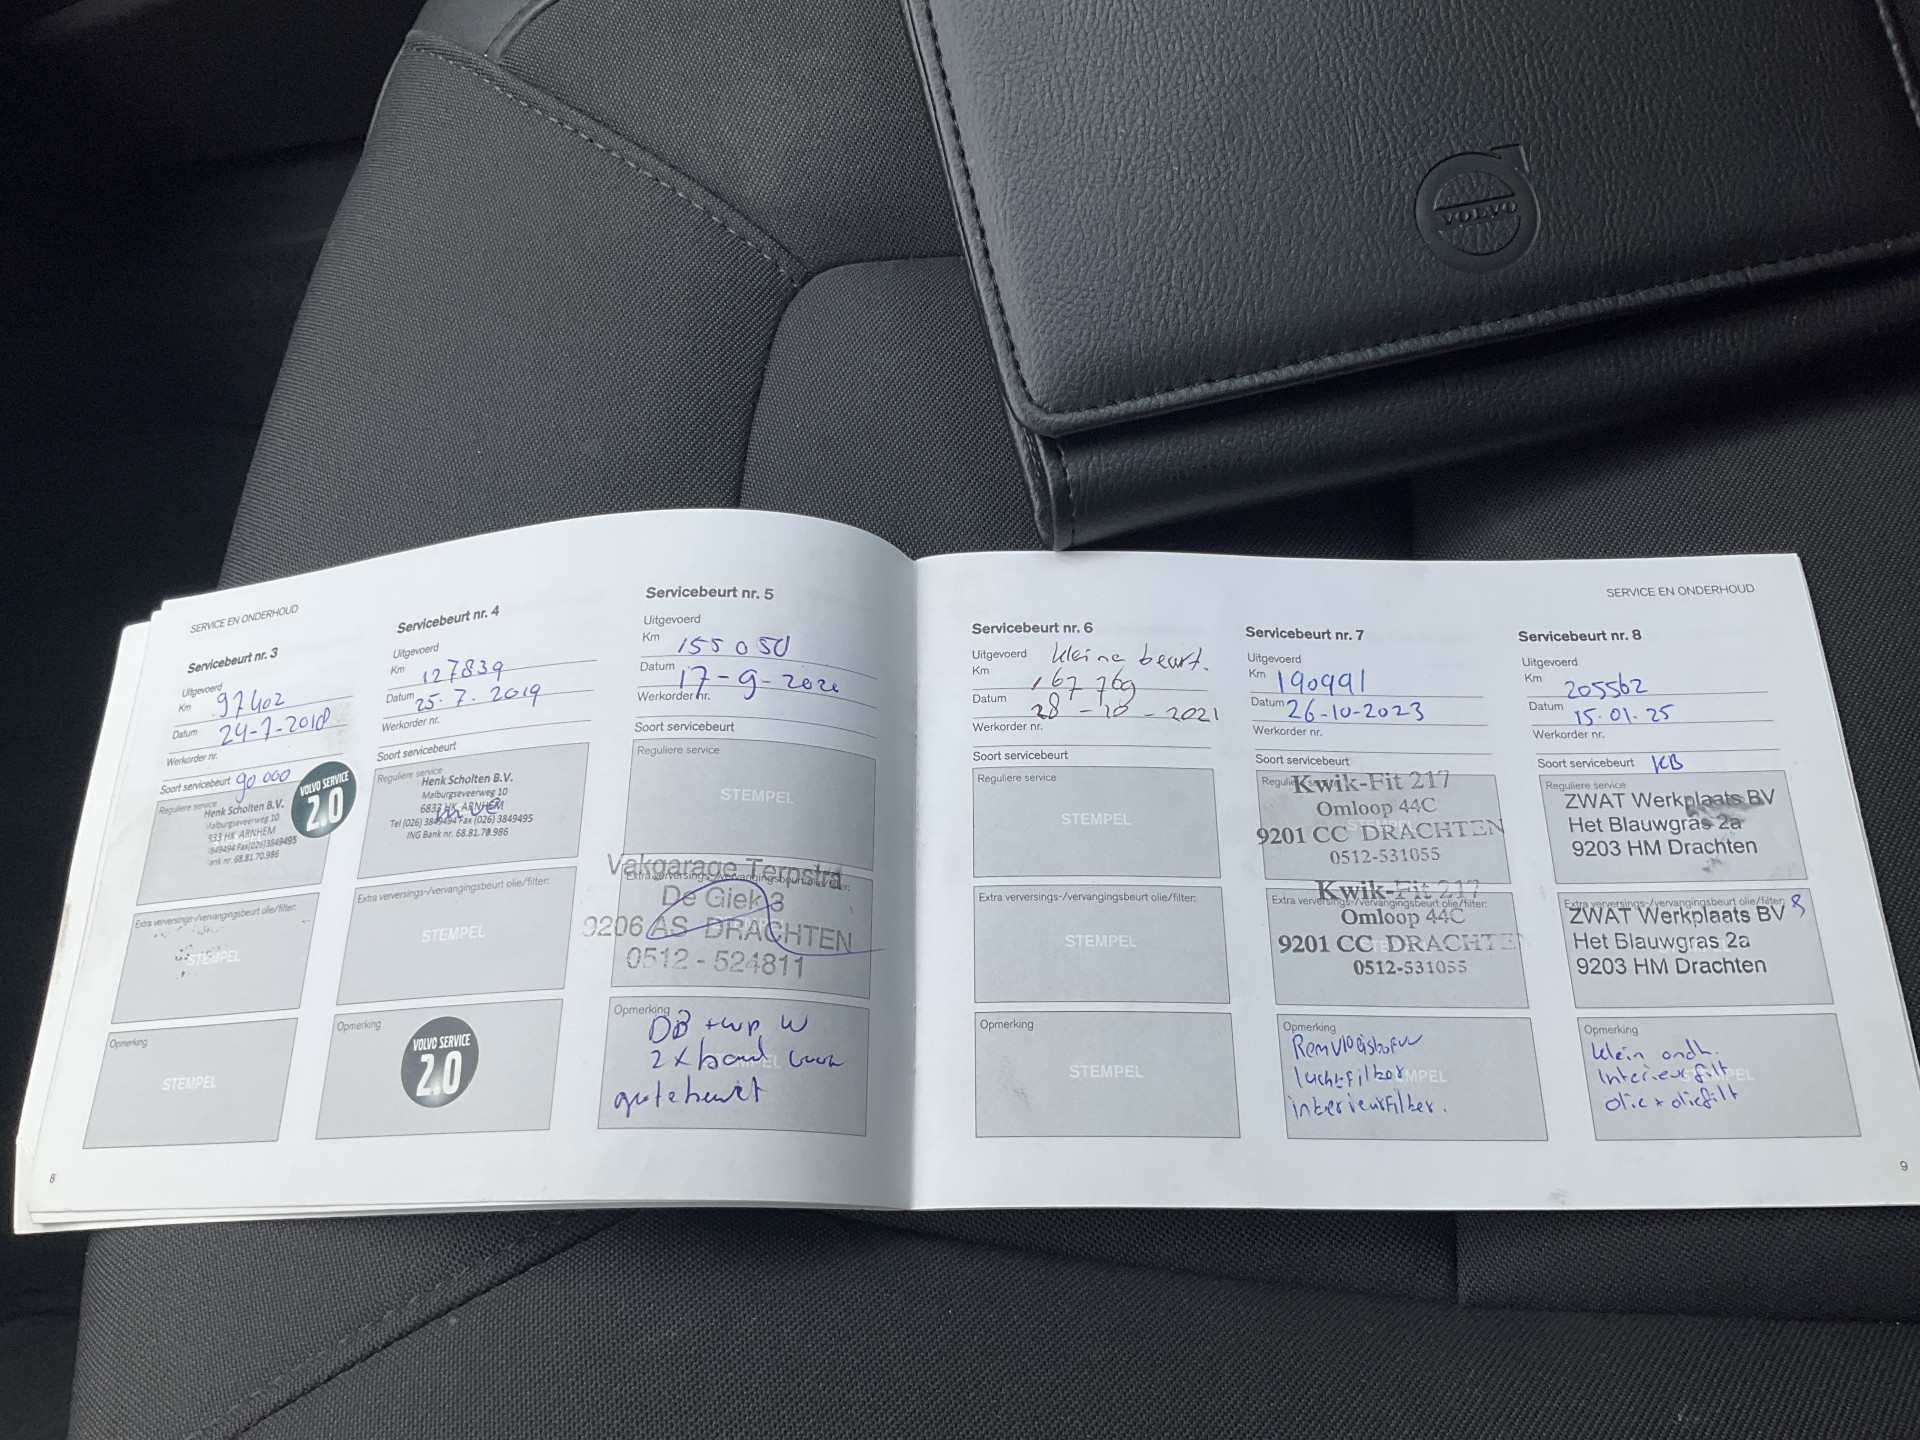 VOLVO
SERVICE EN ONDERHOUD
Servicebeurt nr. 3
Uitgevoerd
Km 97402
Datum 24-7-2018
Werkorder nr.
Soort servicebeurt 90 000
VOLVO SERVICE
2.0
Reguliere service
Henk Scholten B.V.
Malburgseveerweg 10
833 HK ARNHEM
849494 Fax(026)3849495
ank nr. 68.81.70.986
Extra verversings-/vervangingsbeurt olie/filter:
STEMPEL
Opmerking
STEMPEL
8
Servicebeurt nr. 4
Uitgevoerd
Km 127839
Datum 25.7.2019
Werkorder nr.
Soort servicebeurt
Reguliere service
Henk Scholten B.V.
Malburgseveerweg 10
6833 HK ARNHEM
Tel (026) 3849494 Fax (026) 3849495
ING Bank nr. 68.81.70.986
Extra verversings-/vervangingsbeurt olie/filter:
STEMPEL
Opmerking
VOLVO SERVICE
2.0
Servicebeurt nr. 5
Uitgevoerd
Km 155050
Datum 17-9-2020
Werkorder nr.
Soort servicebeurt
Reguliere service
STEMPEL
Vakgarage Terpstra
Extra verversings-/vervangingsbeurt olie/filter:
De Giek 3
9206 AS DRACHTEN
0512 - 524811
Opmerking
2 x band
grote beurt
SERVICE EN ONDERHOUD
Servicebeurt nr. 6
Uitgevoerd kleine beurt.
Km 167769
Datum 28-10-2021
Werkorder nr.
Soort servicebeurt
Reguliere service
STEMPEL
Extra verversings-/vervangingsbeurt olie/filter:
STEMPEL
Opmerking
STEMPEL
Servicebeurt nr. 7
Uitgevoerd
Km 190991
Datum 26-10-2023
Werkorder nr.
Soort servicebeurt
Reguliere
Kwik-Fit 217
Omloop 44C
9201 CC DRACHTEN
0512-531055
Kwik-Fit 217
Extra verversings-/vervangingsbeurt olie/filter:
Omloop 44C
9201 CC DRACHTE
0512-531055
Opmerking
Remvloeistof
luchtfilter
interieurfilter.
Servicebeurt nr. 8
Uitgevoerd
Km 205562
Datum 15.01.25
Werkorder nr.
Soort servicebeurt KB
Reguliere service
ZWAT Werkplaats BV
Het Blauwgras 2a
9203 HM Drachten
Extra verversings-/vervangingsbeurt olie/filter:
ZWAT Werkplaats BV
Het Blauwgras 2a
9203 HM Drachten
Opmerking
klein ondh.
Interieurfilt
olie + oliefilt
9